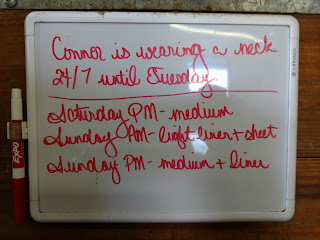 Connor is wearing a neck
24/7 until Tuesday
Saturday PM - medium
Sunday AM - light liner + sheet
Sunday PM - medium + liner
EXPO